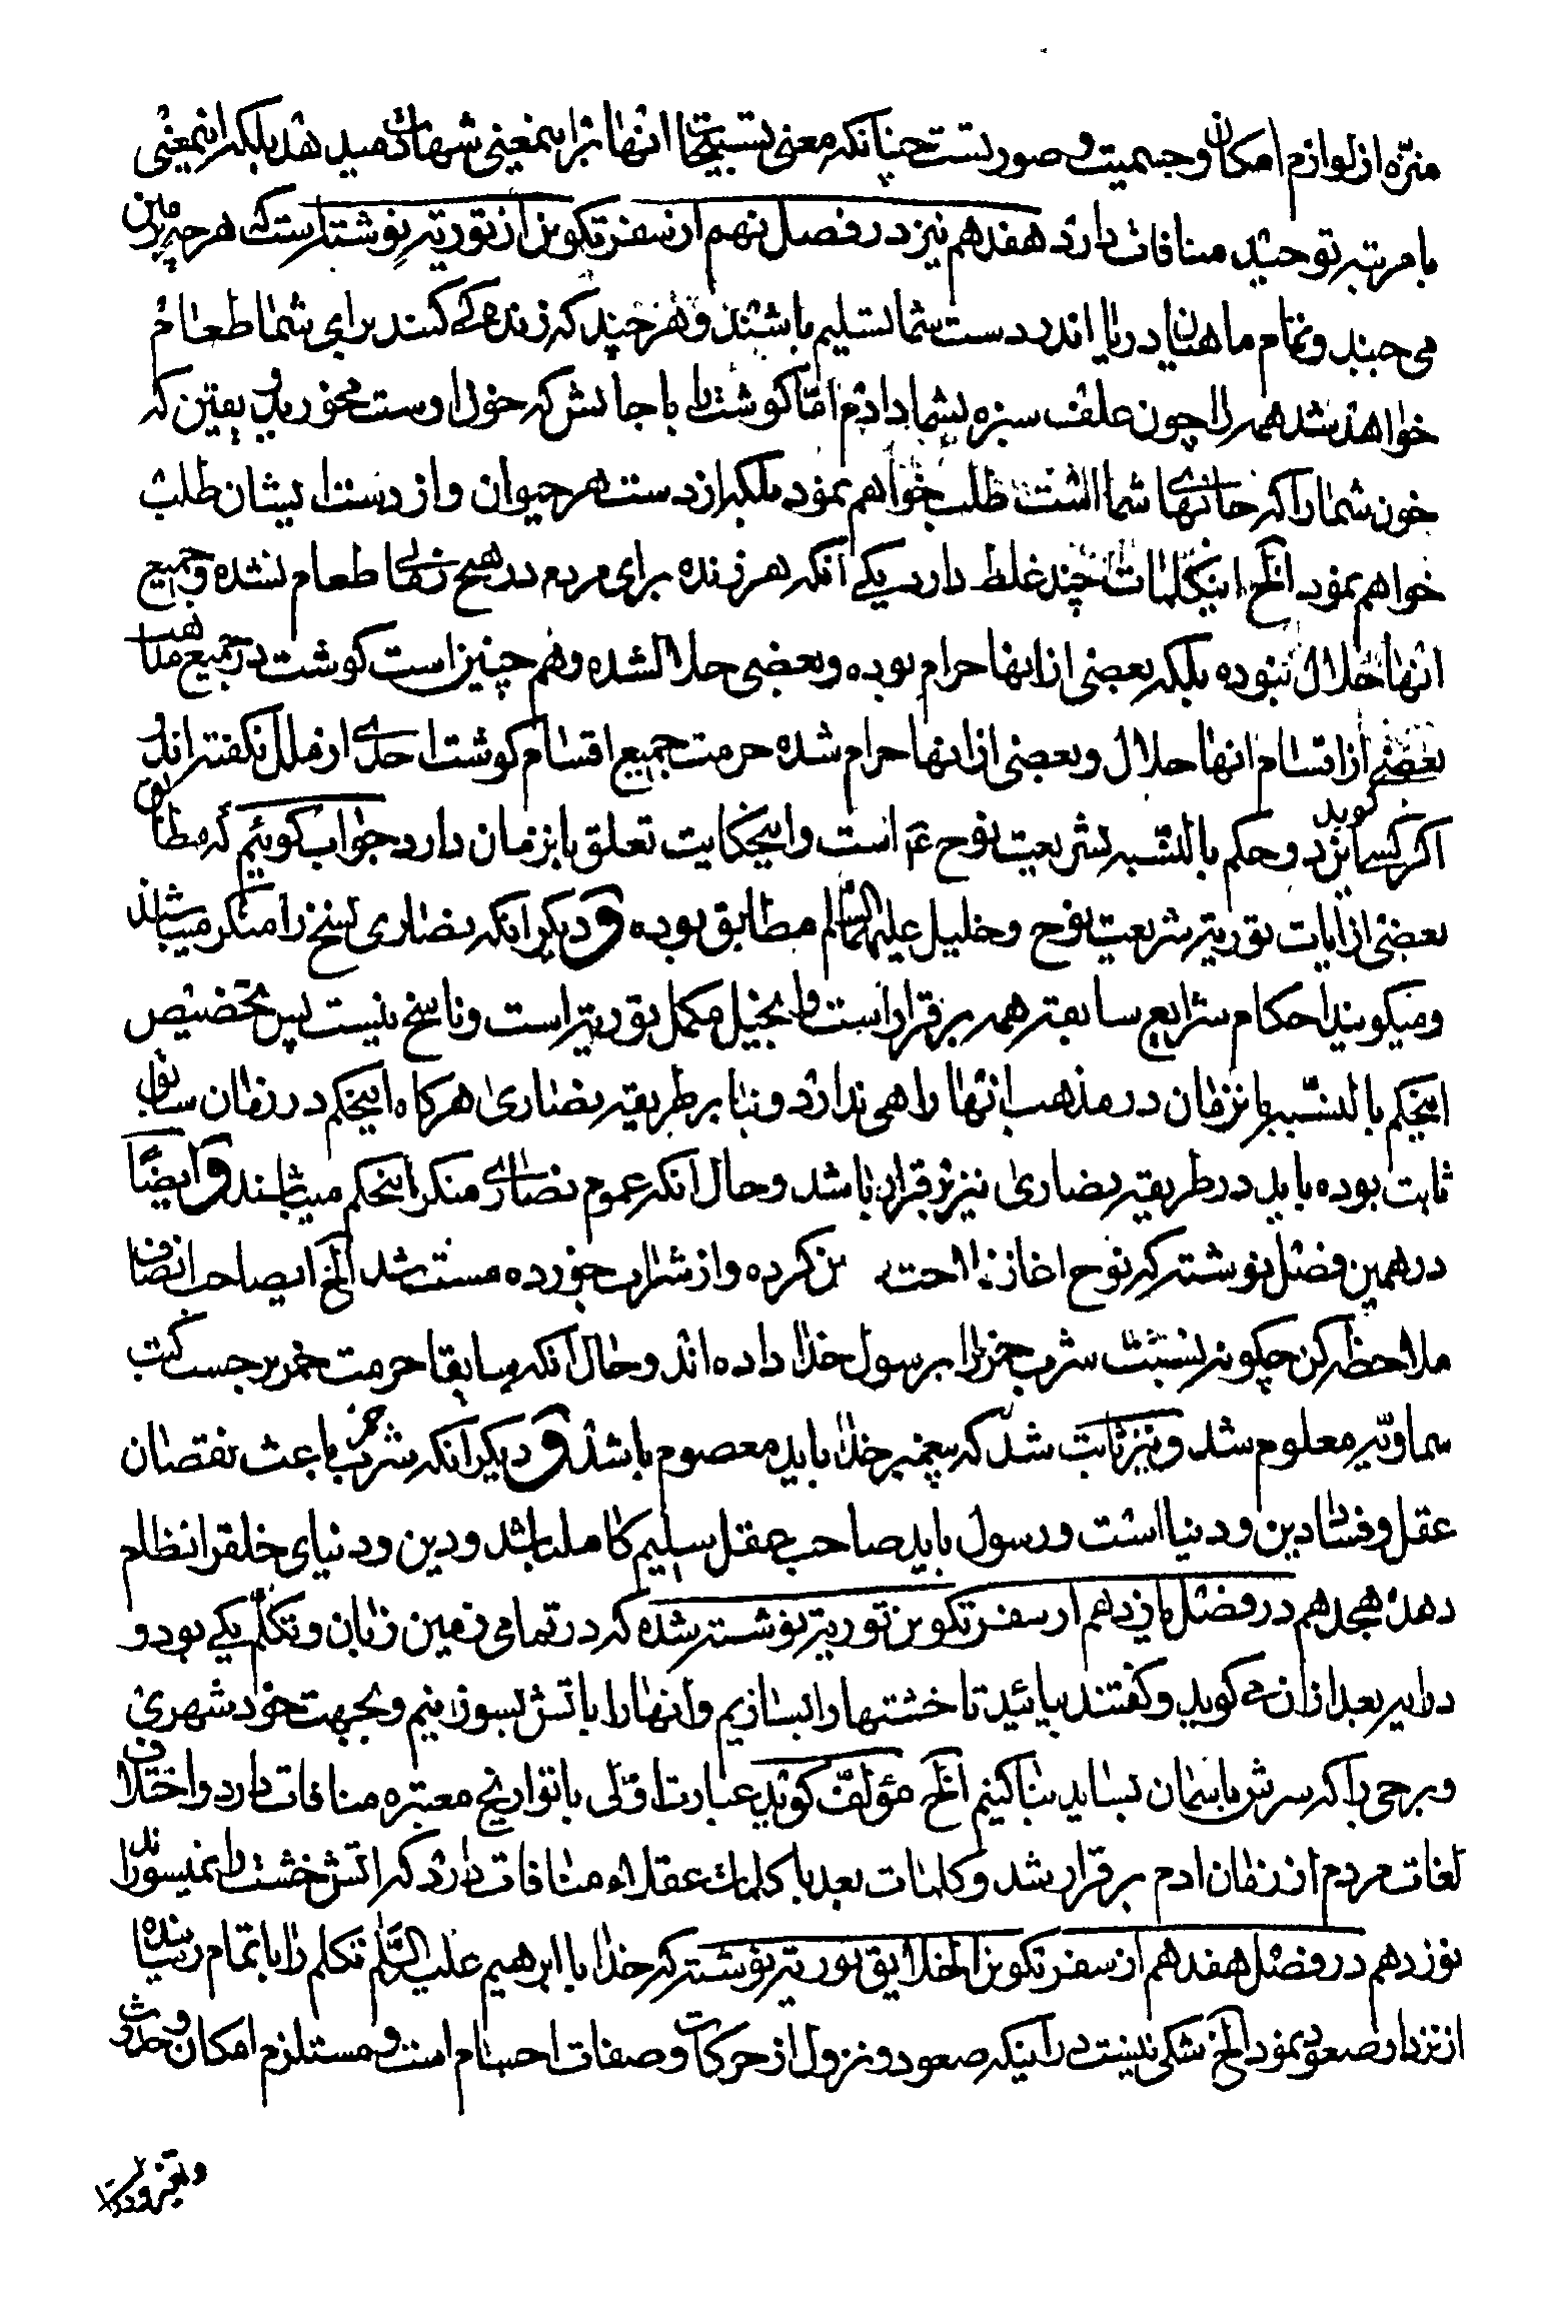 منزه از لوازم امکان و جسمیت و صور تست چنانکه معنی تسبیحات انها نیز اینمعنی شهادت میدهد بلکه اینمعنی
با مرتبه توحید منافات دارد هفدهم نیز در فصل نهم از سفر تکوین از توریة نوشته است که هر چه بر زمین
می جنبد و تمام ماهیان دریا اندر دست شما تسلیم باشند و هر جنبد که زندهٔ کند برای شما طعام
خواهد شد همه را چون علف سبزه بشما دادم اما گوشت را با جانش که خون اوست مخورید و بیقین که
خون شما را که جانهای شما است طلب خواهم نمود بلکه از دست هر حیوان و از دست ایشان طلب
خواهم نمود الخ اینکلمات چند غلط دارد یکی آنکه هر زنده برای مردم در هیچ زمانی طعام نشده و جمیع
انها حلال نبوده بلکه بعضی از انها حرام بوده و بعضی حلال شده و هم چنین است گوشت در جمیع مذاهب
بعضی از اقسام انها حلال و بعضی از انها حرام شده حرمت جمیع اقسام گوشت احدی از ملل نگفته اند و
اگر کسی گوید این دو حکم بالنسبه بشریعت نوح ع است و اینحکایت تعلق باینزمان دارد جواب گوئیم که مطابق
بعضی از ایات توریة شریعت نوح و خلیل علیهما السلام مطابق بوده و دیگر انکه نصاری نسخ را منکر میباشند
و میگویند احکام شرایع سابقه همه برقرار است و انجیل مکمل توریة است و ناسخ نیست پس تخصیص
اینحکم بالنسبه باینزمان در مذهب انها راهی ندارد و بنا بر طریقه نصاری هرگاه اینحکم در زمان سابق
ثابت بوده باید در طریقه نصاری نیز برقرار باشد و حال انکه عموم نصاری منکر اینحکم میباشند و ایضا
در همین فصل نوشته که نوح اغاز فلاحت زمین کرده و از شراب خورده مست شد الخ ایصاحب انصاف
ملاحظه کن چگونه نسبت شرب خمر را برسول خدا داده اند و حال انکه سابقا حرمت خمر بر حسب کتب
سماویه معلوم شد و نیز ثابت شد که پیغمبر خدا باید معصوم باشد و دیگر انکه شرب خمر باعث نقصان
عقل و فساد دین و دنیا است و رسول باید صاحب عقل سلیم کامل باشد و دین و دنیای خلق را نظام
دهد هجدهم در فصل یازدهم از سفر تکوین توریة نوشته شده که در تمامی زمین زبان و تکلم یکی بود و
در ایه بعد از ان میگوید و گفتند بیائید تا خشتها را بسازیم و انها را باتش بسوزانیم و بجهت خود شهری
و برجی را که سرش باسمان بساید بنا کنیم الخ مؤلف گوید عبارت اولی با تواریخ معتبره منافات دارد و اختلاف
لغات مردم از زمان ادم برقرار شد و کلمات بعد با کلمات عقلاء منافات دارد که اتش خشت را نمیسوزاند
نوزدهم در فصل هفدهم از سفر تکوین الخلایق توریة نوشته که خدا با ابرهیم علیه السلام تکلم را باتمام رسانیده
از نزد او صعود نمود الخ شکی نیست در اینکه صعود و نزول از حرکات و صفات اجسام است و مستلزم امکان و حدوث